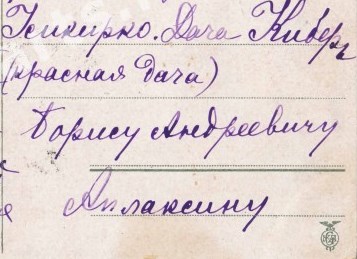 Дача Киберъ
(красная дача)
Борису Андреевичу
Апраксину